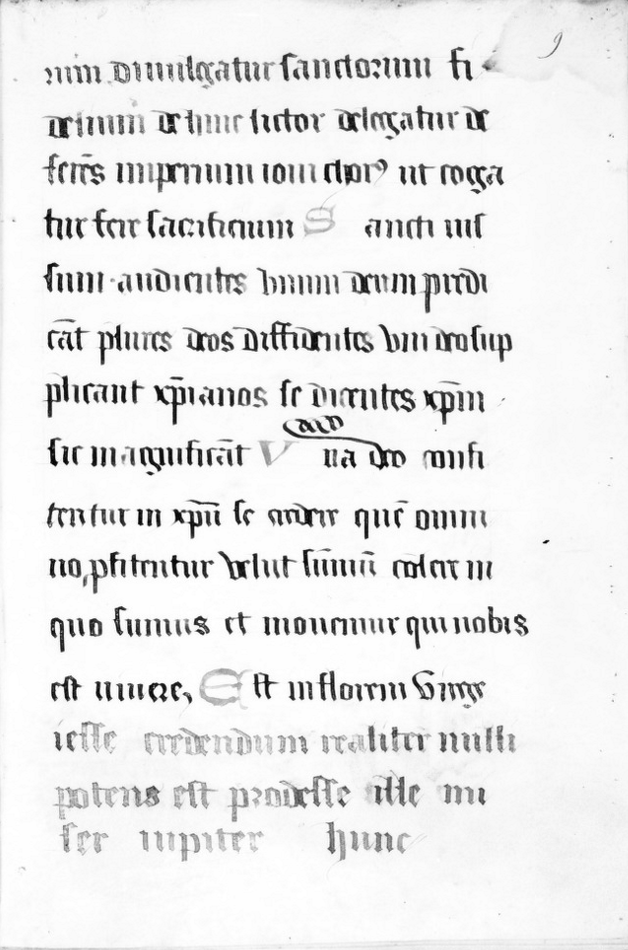 9
rum divulgatur sanctorum fi
delium de hinc lictor delegatur de
ferēs imperium ioui chorꝰ ut coga
tur fere sacrificium S ancti uis
sum audientes vnum deum predi
cāt plures deos diffidentes vni deo sup
plicant xp̄ianos se dicentes xp̄m
sic magnificāt V na deo confi
tentur in xp̄ū se credere quē omni
no, ꝓfitentur velut sūmū colere in
quo sumus et mouemur qui nobis
est uiuere, E st in florem virge
iesse credendum realiter nulli
potens est prodesse ille mi
ser iupiter hunc